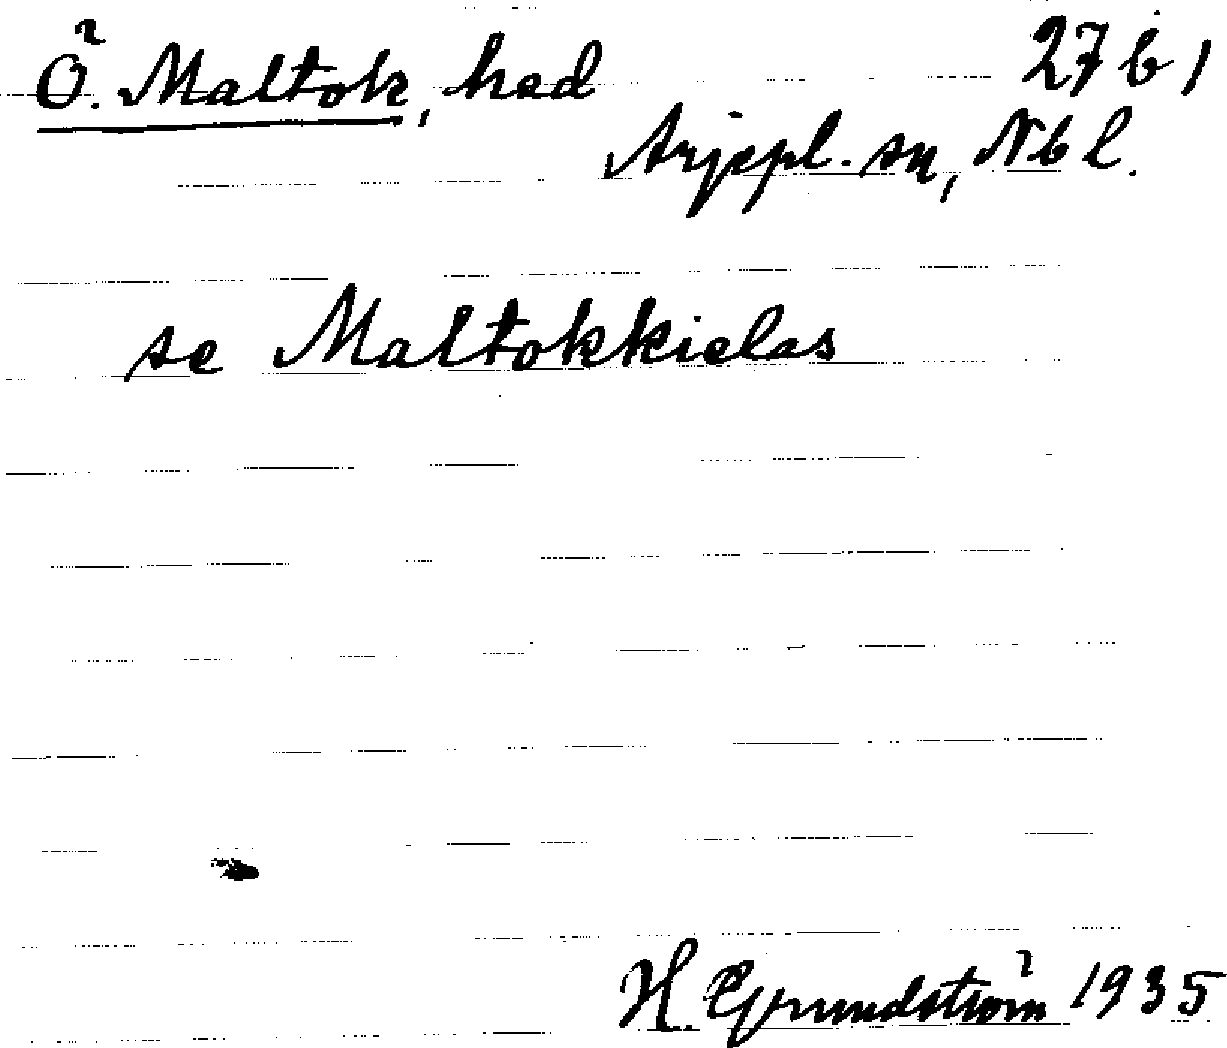 Ö. Maltok, hed 27 b 1
Arjepl. sn, Nbl.
se Maltokkielas
H Grundström 1935